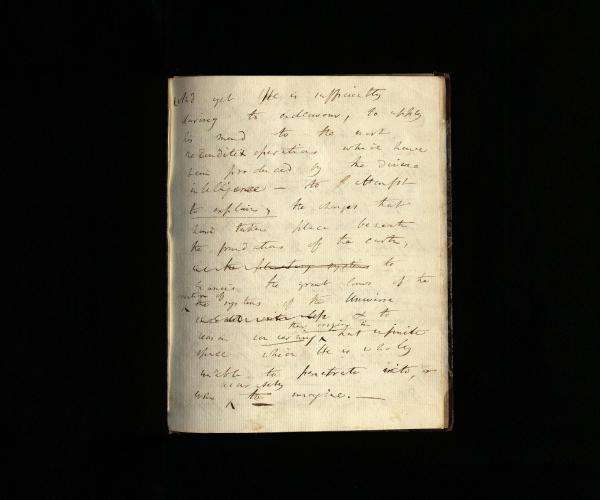 And yet He is sufficiently
daring to endeavour, to apply
his mind to the most
recondite operations which have
been produced by the divine
intelligence — to attempt
to explain, the changes that
have taken place beneath
the foundations of the earth,
to
the great laws of the
motion of
the systems of the Universe
& to
reason concerning that infinite
space which He is wholly
unable to penetrate into, or
accurately
to imagine. —